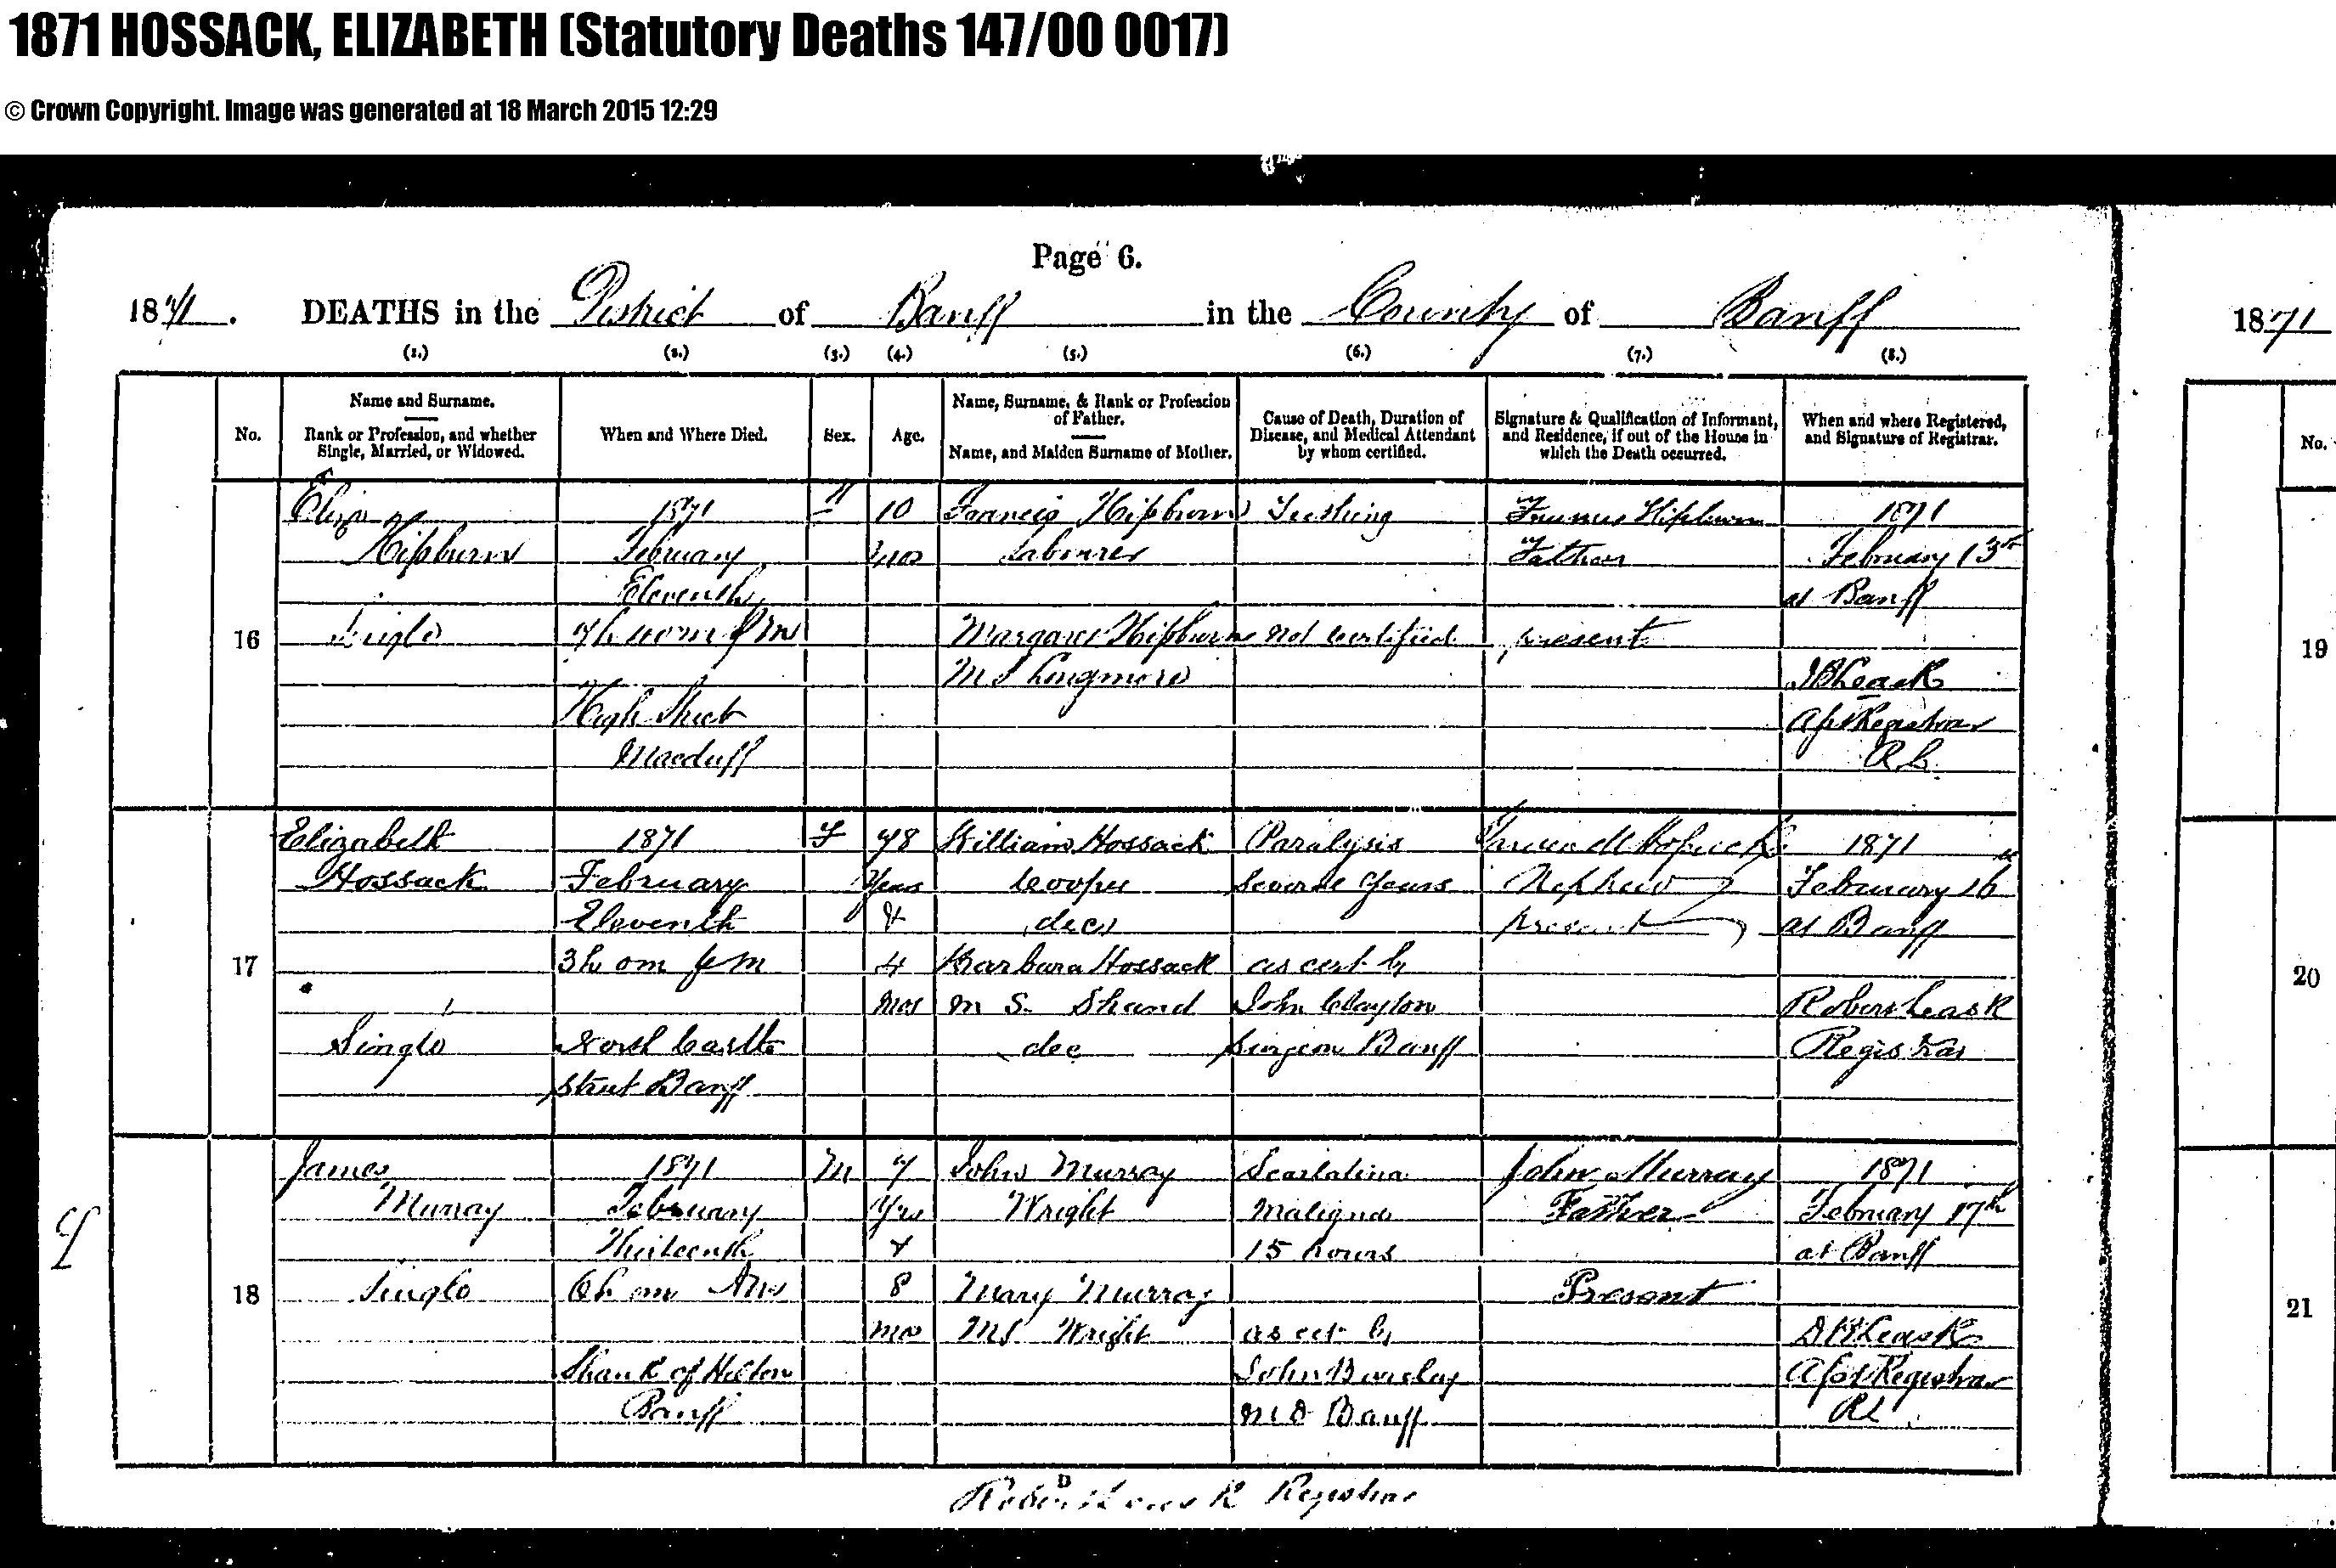 1871 HOSSACK, ELIZABETH (Statutory Deaths 147/00 0017)
© Crown Copyright. Image was generated at 18 March 2015 12:29
Page 6.
1871. DEATHS in the District of Banff in the County of Banff
1871
(1.) (2.) (3.) (4.) (5.) (6.) (7.) (8.)
No.
Name and Surname.
Rank or Profession, and whether
Single, Married, or Widowed.
When and Where Died.
Sex.
Age.
Name, Surname, & Rank or Profession
of Father.
Name, and Maiden Surname of Mother.
Cause of Death, Duration of
Disease, and Medical Attendant
by whom certified.
Signature & Qualification of Informant,
and Residence, if out of the House in
which the Death occurred.
When and where Registered,
and Signature of Registrar.
No.
16
Eliza
Hipburn
Single
1871
February
Eleventh
7h 40m PM
High Street
Macduff
10
mos
Francis Hipburn
Labourer
Margaret Hipburn
MS Longmore
Teething
not certified
Francis Hipburn
Father
present
1871
February 13th
at Banff
Leask
Asst Registrar
R.L.
19
17
Elizabeth
Hossack
Single
1871
February
Eleventh
3h 0m PM
North Castle
Street Banff
F
78
Years
&
4
Mos
William Hossack
Cooper
dec
Barbara Hossack
M S. Shand
dec
Paralysis
Several years
as cert by
John Clayton
Surgeon Banff
Nephew
present
1871
February 16th
at Banff
Robert Leask
Registrar
20
18
James
Murray
Single
1871
February
Thirteenth
0m AM
Shank of Hilton
Banff
M
7
Yrs
&
8
mo
John Murray
Wright
Mary Murray
MS Wright
Scarlatina
Maligna
15 hours
as cert by
John Barclay
MD Banff
John Murray
Father
Present
1871
February 17th
at Banff
Leask
Asst Registrar
RL
21
Robert Leask Registrar